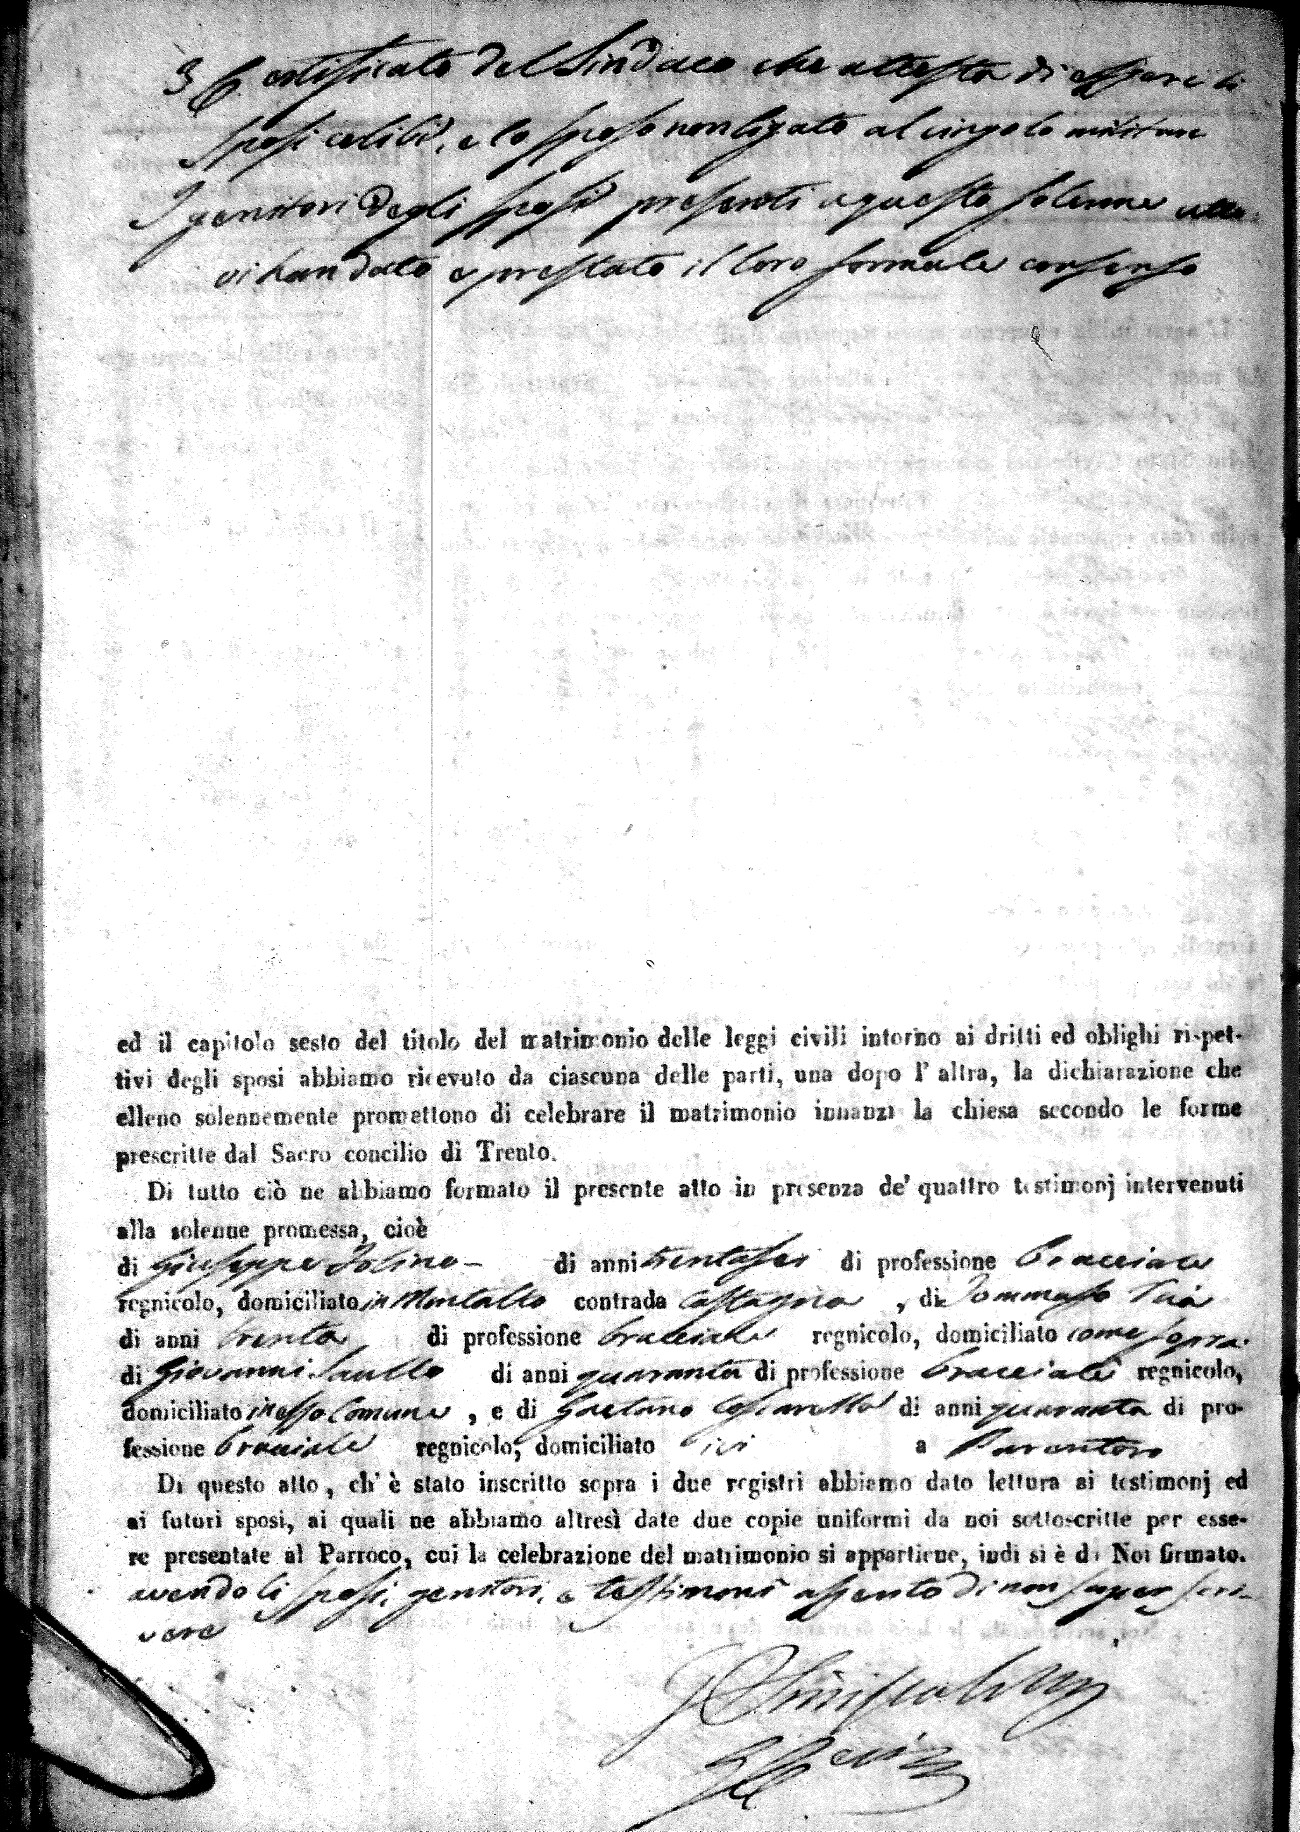 3 Certificato del Sindaco che attesta di essere li
sposi celibi, e lo sposo non ligato al cingolo militare
I genitori degli sposi presenti a questo solenne atto
vi han dato e prestato il loro formale consenso
ed il capitolo sesto del titolo del matrimonio delle leggi civili intorno ai dritti ed oblighi rispet-
tivi degli sposi abbiamo ricevuto da ciascuna delle parti, una dopo l'altra, la dichiarazione che
elleno solennemente promettono di celebrare il matrimonio innanzi la chiesa secondo le forme
prescritte dal Sacro concilio di Trento.
Di tutto ciò ne abbiamo formato il presente atto in presenza de' quattro testimonj intervenuti
alla solenne promessa, cioè
di Giuseppe di anni trentasei di professione Bracciale
regnicolo, domiciliato in Montalto contrada Castagna, di Tommaso
di anni trenta di professione bracciale regnicolo, domiciliato come sopra
di Giovanni Saullo di anni quaranta di professione bracciale regnicolo,
domiciliato in esso Comune, e di Gaetano di anni quaranta di pro-
fessione bracciale regnicolo, domiciliato ivi a Parantoro
Di questo atto, ch' è stato inscritto sopra i due registri abbiamo dato lettura ai testimonj ed
ai futuri sposi, ai quali ne abbiamo altresì date due copie uniformi da noi sottoscritte per esse-
re presentate al Parroco, cui la celebrazione del matrimonio si appartiene, indi si è da Noi firmato.
avendo li sposi, genitori, e testimoni assento di non saper scri-
vere